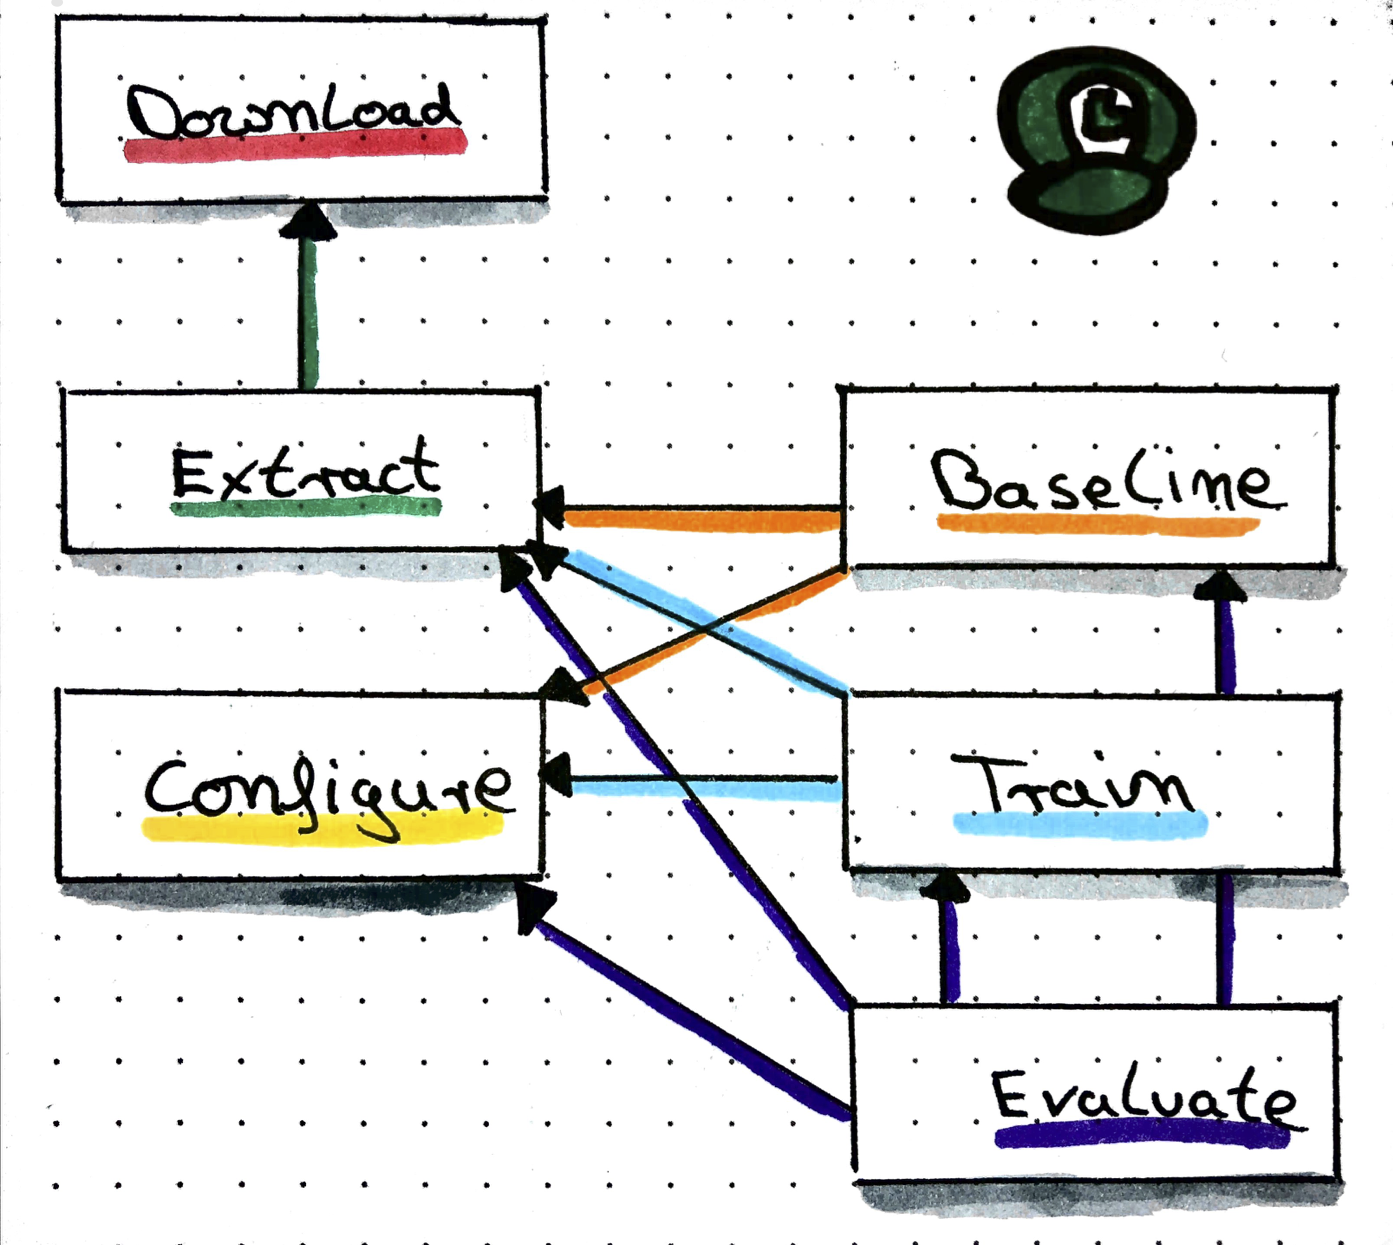 Download
L
Extract
Baseline
Configure
Train
Evaluate